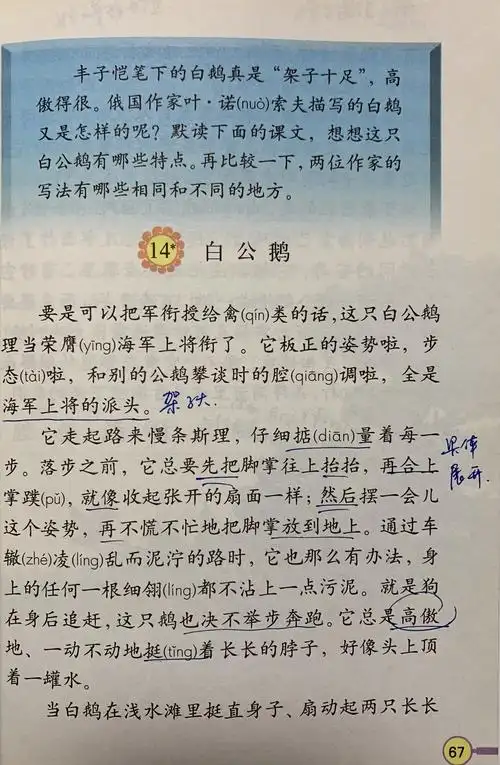 丰子恺笔下的白鹅真是“架子十足”，高
傲得很。俄国作家叶·诺(nuò)索夫描写的白鹅
又是怎样的呢？默读下面的课文，想想这只
白公鹅有哪些特点。再比较一下，两位作家的
写法有哪些相同和不同的地方。
14* 白公鹅
要是可以把军衔授给禽(qín)类的话，这只白公鹅
理当荣膺(yīng)海军上将衔了。它板正的姿势啦，步
态(tài)啦，和别的公鹅攀谈时的腔(qiāng)调啦，全是
海军上将的派头。架子大.
它走起路来慢条斯理，仔细掂(diān)量着每一
步。落步之前，它总要先把脚掌往上抬抬，再合上
掌蹼(pǔ)，就像收起张开的扇面一样；然后摆一会儿
这个姿势，再不慌不忙地把脚掌放到地上。通过车
辙(zhé)凌(líng)乱而泥泞的路时，它也那么有办法，身
上的任何一根细翎(líng)都不沾上一点污泥。就是狗
在身后追赶，这只鹅也决不举步奔跑。它总是高傲
地、一动不动地挺(tǐng)着长长的脖子，好像头上顶
着一罐水。
当白鹅在浅水滩里挺直身子、扇动起两只长长
67